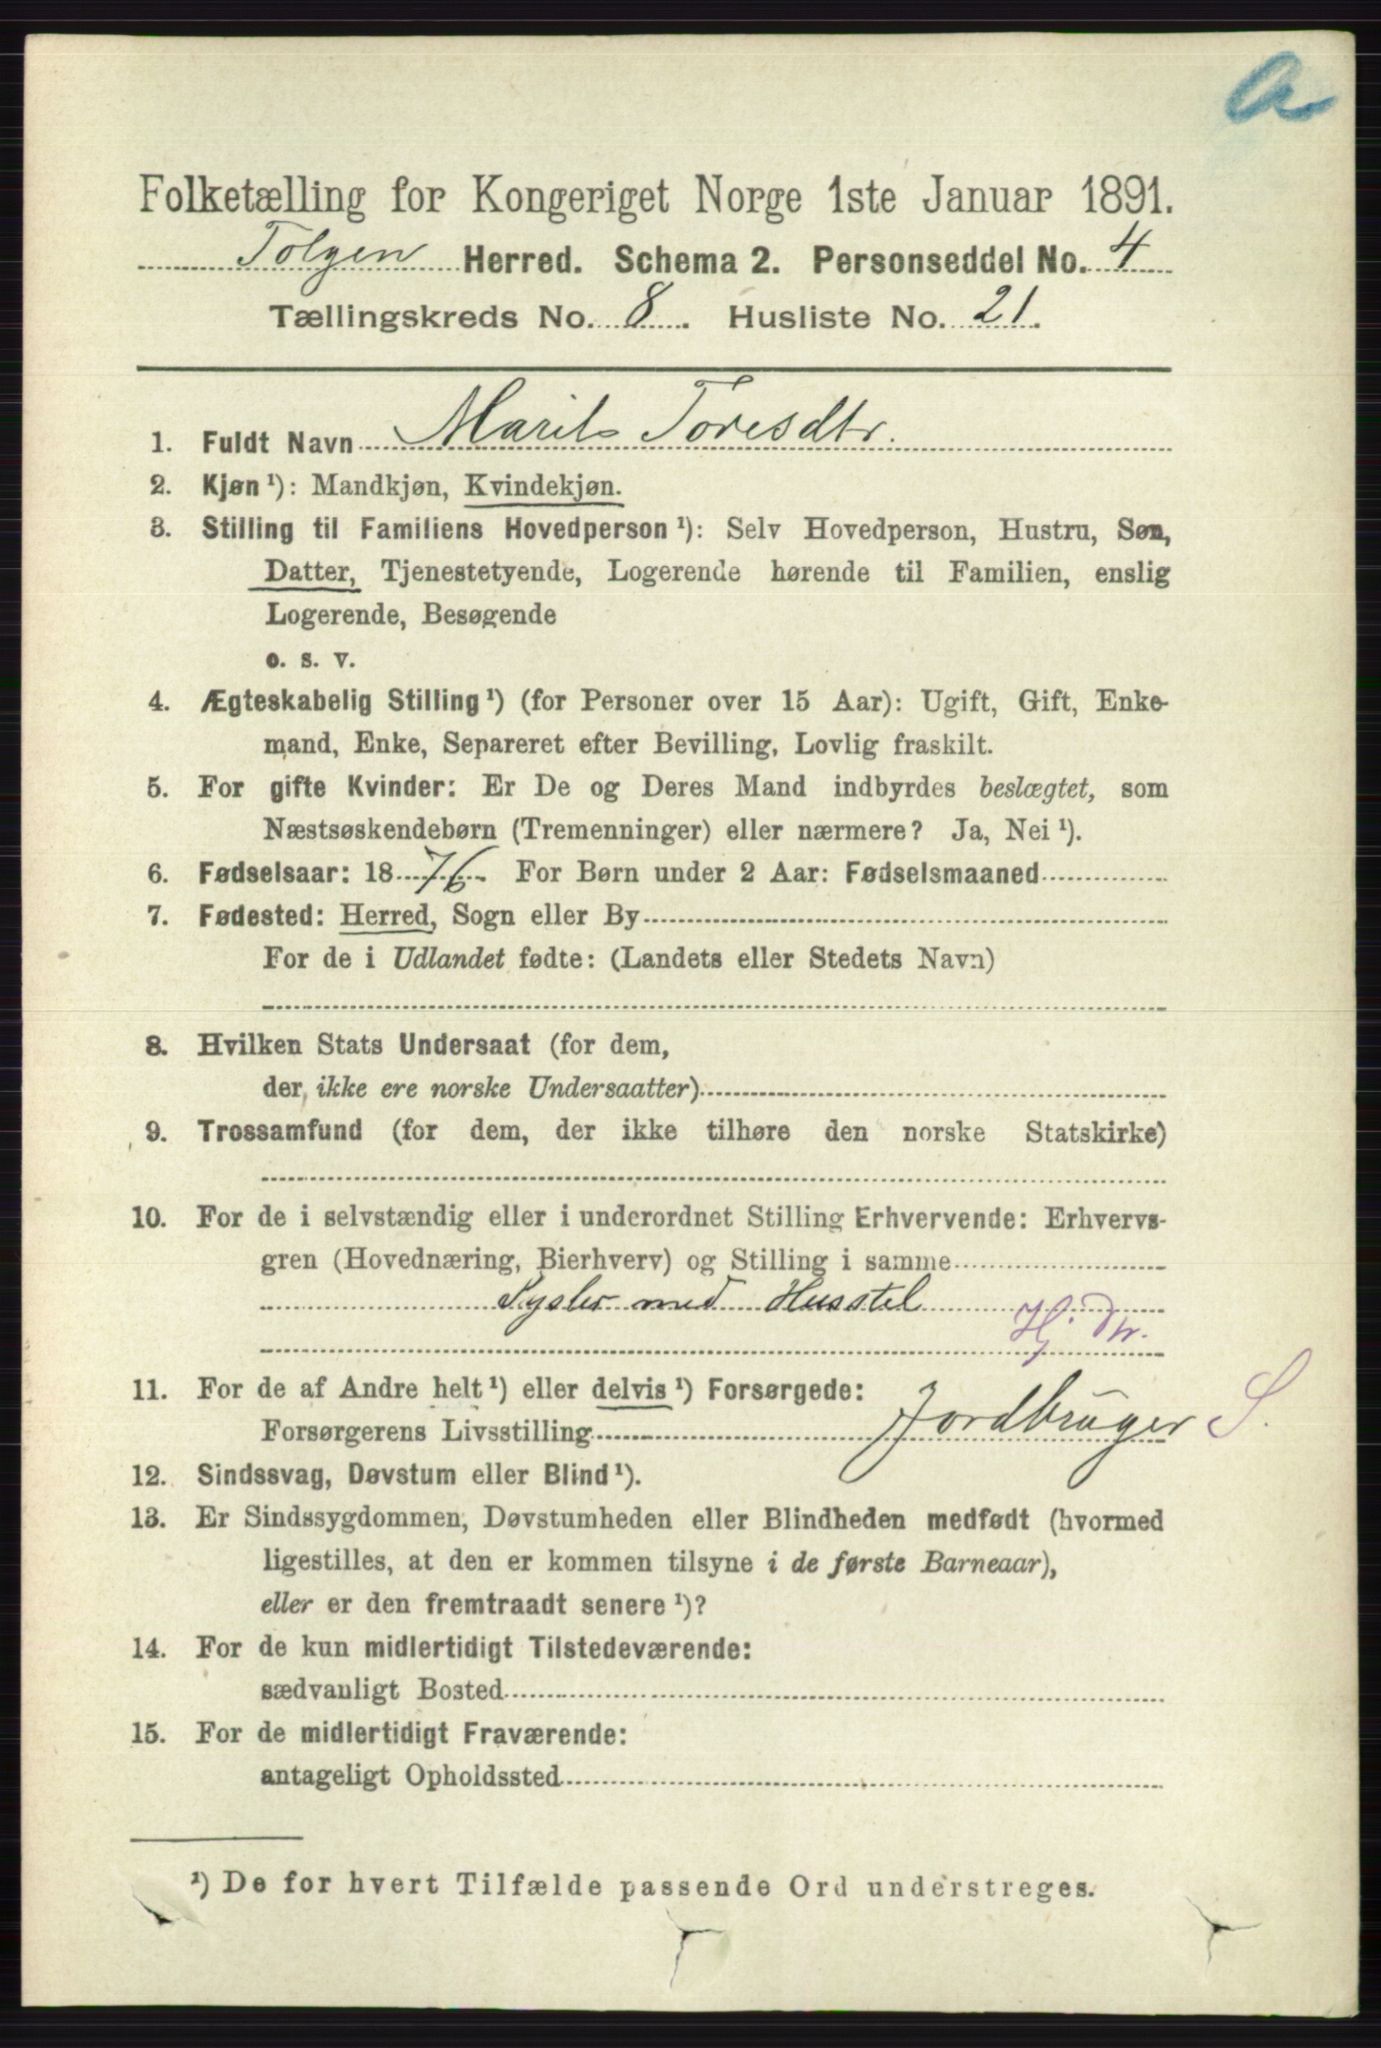 a
Folketælling for Kongeriget Norge 1ste Januar 1891.
Tolgen Herred. Schema 2. Personseddel No. 4
Tællingskreds No. 8. Husliste No. 21.
1. Fuldt Navn Marit Toresdtr.
2. Kjøn ¹): Mandkjøn, Kvindekjøn.
3. Stilling til Familiens Hovedperson ¹): Selv Hovedperson, Hustru, Søn,
Datter, Tjenestetyende, Logerende hørende til Familien, enslig
Logerende, Besøgende
o. s. v.
4. Ægteskabelig Stilling ¹) (for Personer over 15 Aar): Ugift, Gift, Enke-
mand, Enke, Separeret efter Bevilling, Lovlig fraskilt.
5. For gifte Kvinder: Er De og Deres Mand indbyrdes beslægtet, som
Næstsøskendebørn (Tremenninger) eller nærmere? Ja, Nei ¹).
6. Fødselsaar: 1876. For Børn under 2 Aar: Fødselsmaaned
7. Fødested: Herred, Sogn eller By
For de i Udlandet fødte: (Landets eller Stedets Navn)
8. Hvilken Stats Undersaat (for dem,
der ikke ere norske Undersaatter)
9. Trossamfund (for dem, der ikke tilhøre den norske Statskirke)
10. For de i selvstændig eller i underordnet Stilling Erhvervende: Erhvervs-
gren (Hovednæring, Bierhverv) og Stilling i samme
Sysler med Husstel
Hj. Dtr.
11. For de af Andre helt ¹) eller delvis ¹) Forsørgede:
Forsørgerens Livsstilling Jordbruger S.
12. Sindssvag, Døvstum eller Blind ¹).
13. Er Sindssygdommen, Døvstumheden eller Blindheden medfødt (hvormed
ligestilles, at den er kommen tilsyne i de første Barneaar),
eller er den fremtraadt senere ¹)?
14. For de kun midlertidigt Tilstedeværende:
sædvanligt Bosted
15. For de midlertidigt Fraværende:
antageligt Opholdssted
¹) De for hvert Tilfælde passende Ord understreges.